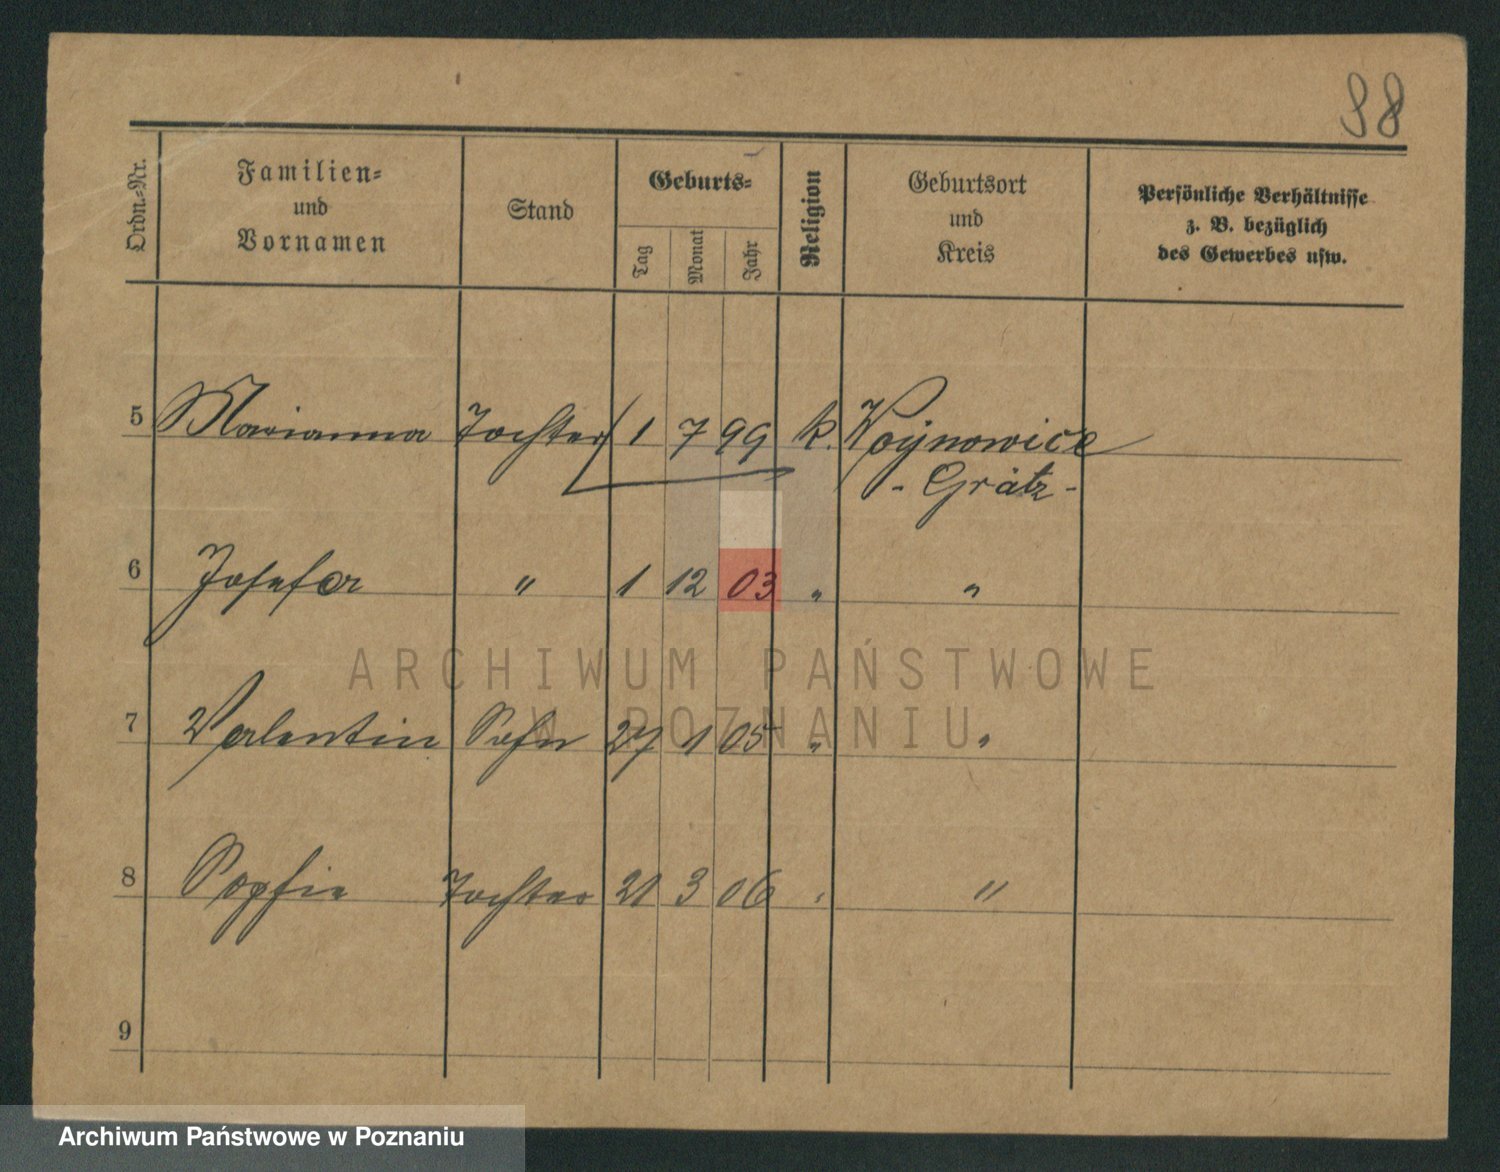 98
Ordn.-Nr.
Familien-
und
Vornamen
Stand
Geburts-
Tag
Monat
Jahr
Religion
Geburtsort
und
Kreis
Persönliche Verhältnisse
z. B. bezüglich
des Gewerbes usw.
5 Marianna Tochter 1 7 99 k. Woynowice
- Grätz -
6 Josefa " 1 12 03 " "
ARCHIWUM PAŃSTWOWE
W POZNANIU
7 Valentin Sohn 27 1 05 " "
8 Sophie Tochter 21 3 06 " "
9
Archiwum Państwowe w Poznaniu